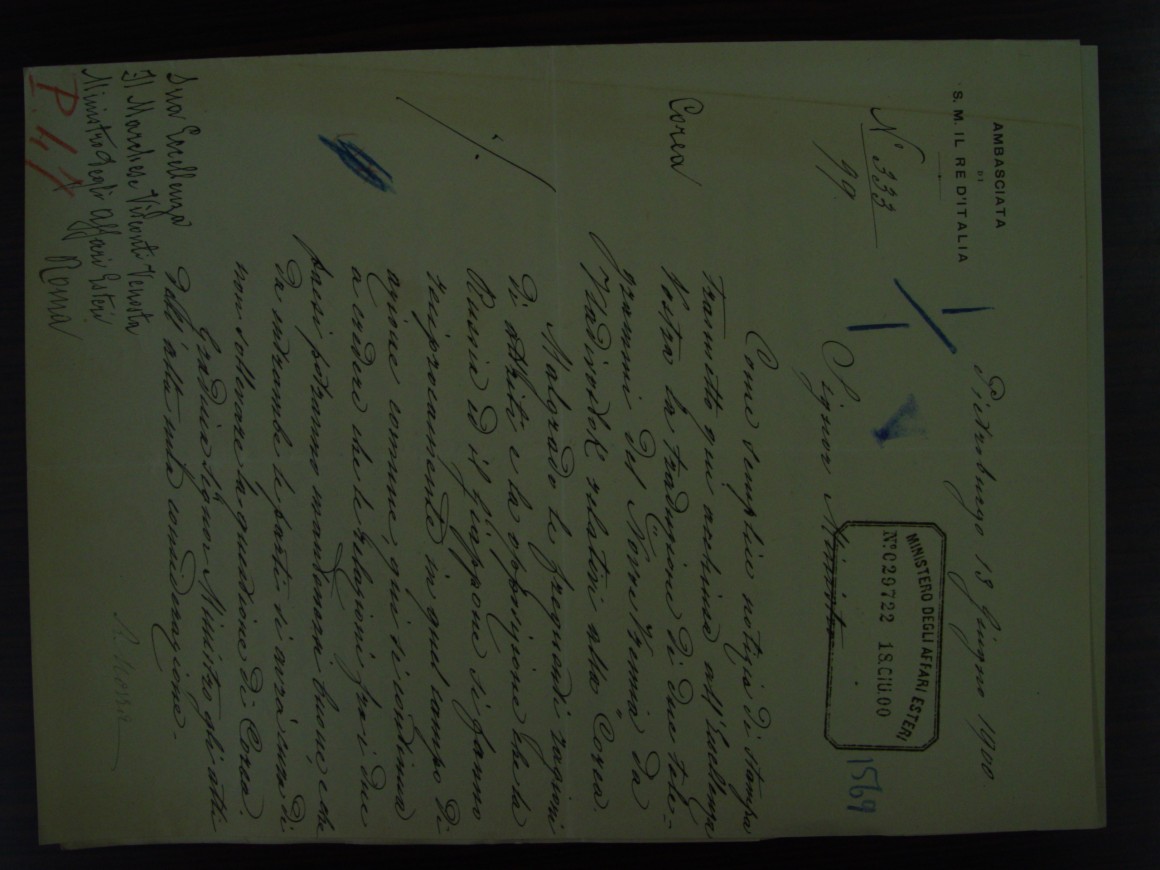 AMBASCIATA
DI
S. M. IL RE D'ITALIA
Pietroburgo 13 Giugno 1900.
N° 333
99
MINISTERO DEGLI AFFARI ESTERI
N° 029722 18.GIU.00
1569
Signor Ministro
Corea
Come semplice notizia di stampa
trasmetto qui acchiusa all'Eccellenza
Vostra la traduzione di due tele=
grammi del Novoe Wremia da
Wladivostok relativi alla Corea.
Malgrado le frequenti ragioni
di attriti e la opposizione che la
Russia ed il Giappone si fanno
reciprocamente in quel campo di
azione comune, qui si continua
a credere che le relazioni frai due
paesi potranno mantenersi buone, e che
da entrambe le parti si avrà cura di
non sollevare la quistione di Corea.
Gradisca Signor Ministro gli atti
dell'alta mia considerazione.
Sua Eccellenza
Il Marchese Visconti Venosta
Ministro degli Affari Esteri
Roma